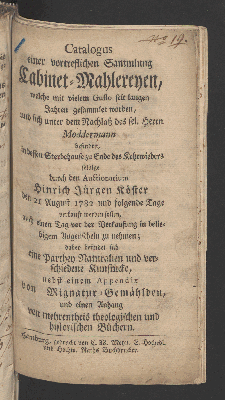 No 19.
Catalogus
einer vortreflichen Sammlung
Cabinet-Mahlereyen,
welche mit vielem Gusto seit langen
Jahren gesammlet worden,
und sich unter dem Nachlaß des sel. Herrn
Moddermann
befindet,
in dessen Sterbehause zu Ende des Kehrwieders
selbige
durch den Auctionarium
Hinrich Jürgen Köster
den 21 August 1782 und folgende Tage
verkauft werden sollen,
auch einen Tag vor der Verkauffung in belie-
bigem Augenschein zu nehmen;
dabey befindet sich
eine Parthey Naturalien und ver-
schiedene Kunstücke,
nebst einem Appendix
von Mignatur-Gemählden,
und einen Anhang
von mehrentheils theologischen und
historischen Büchern.
Hamburg, gedruckt von C. W. Meyn, E. Hochedl.
und Hochw. Raths Buchdrucker.